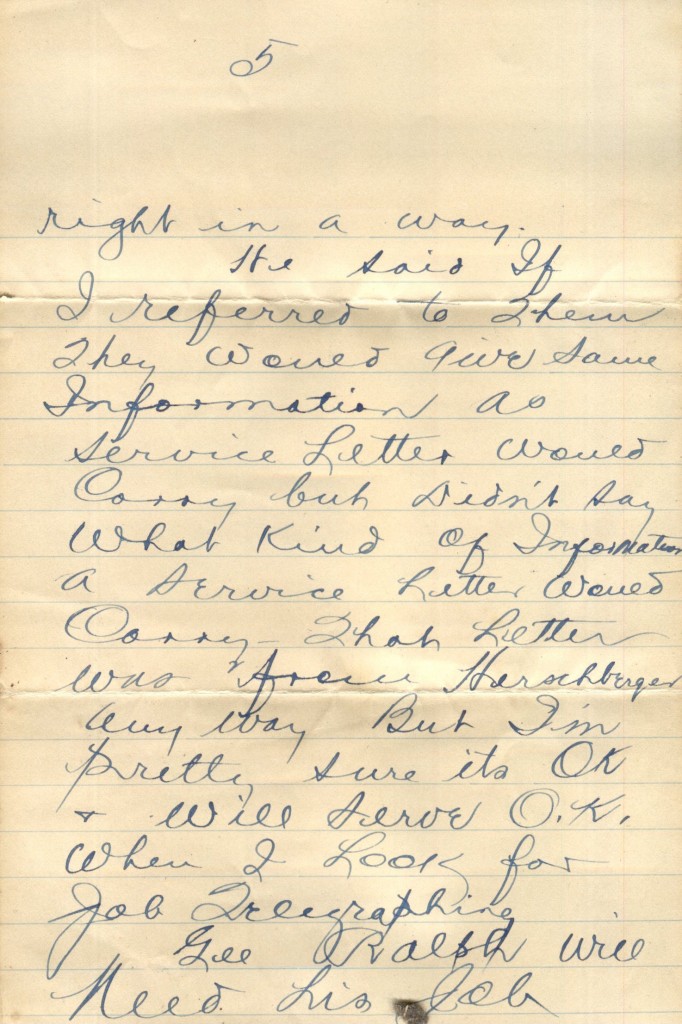 5
right in a way.
He said If
I referred to Them
They Would give Same
Information as
Service Letter Would
Carry but Didn't Say
What Kind Of Information
A Service Letter Would
Carry - That Letter
was from Harschberger
Any Way But I'm
pretty sure its OK
+ Will Serve O.K.
When I Look for
Job Telegraphing
Gee Ralph Will
Need his Job